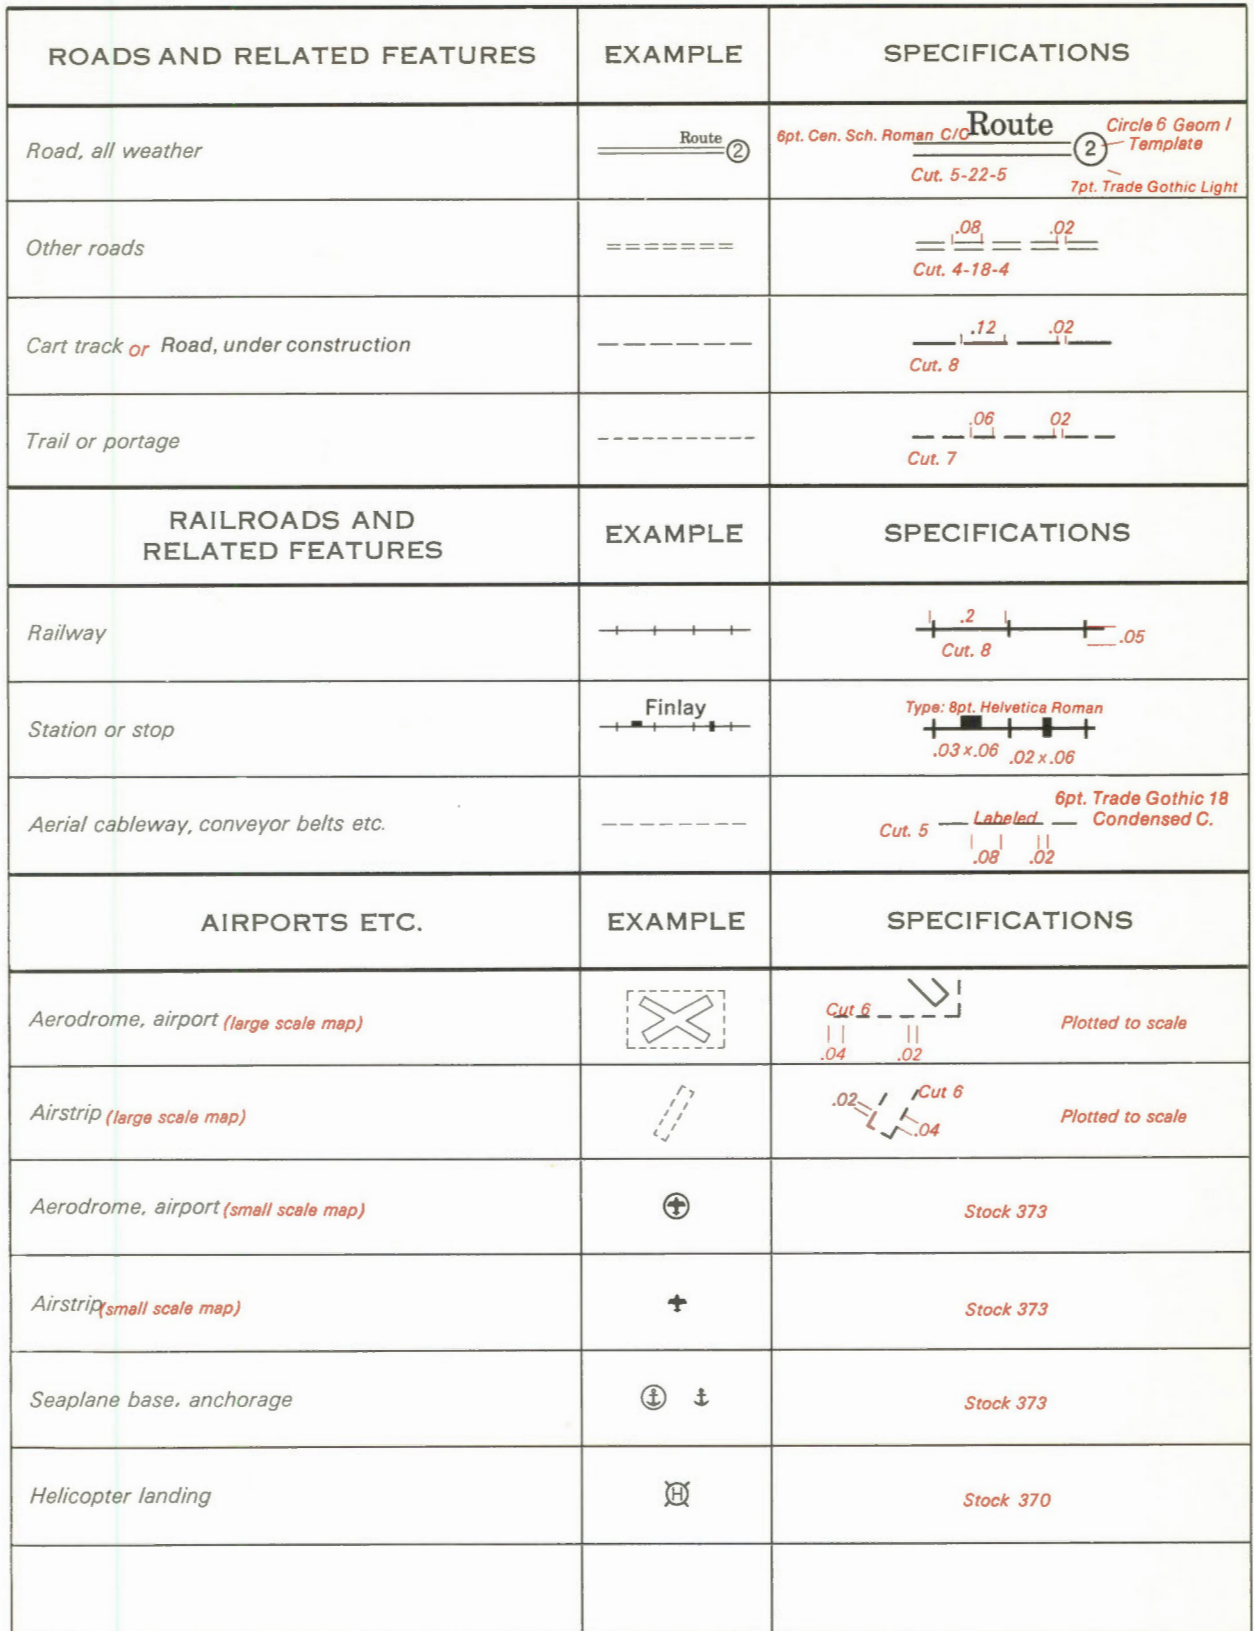 ROADS AND RELATED FEATURES EXAMPLE SPECIFICATIONS
Road, all weather
Route 2
6pt. Cen. Sch. Roman C/C Route 2 Circle 6 Geom I
Template
Cut. 5-22-5
7pt. Trade Gothic Light
Other roads
.08 .02
Cut. 4-18-4
Cart track or Road, under construction
.12 .02
Cut. 8
Trail or portage
.06 02
Cut. 7
RAILROADS AND
RELATED FEATURES
EXAMPLE SPECIFICATIONS
Railway
.2
.05
Cut. 8
Station or stop
Finlay
Type: 8pt. Helvetica Roman
.03 x .06 .02 x .06
Aerial cableway, conveyor belts etc.
6pt. Trade Gothic 18
Condensed C.
Cut. 5 Labeled
.08 .02
AIRPORTS ETC. EXAMPLE SPECIFICATIONS
Aerodrome, airport (large scale map)
Cut 6
Plotted to scale
.04 .02
Airstrip (large scale map)
.02 Cut 6
.04
Plotted to scale
Aerodrome, airport (small scale map)
Stock 373
Airstrip (small scale map)
Stock 373
Seaplane base, anchorage
Stock 373
Helicopter landing
H
Stock 370